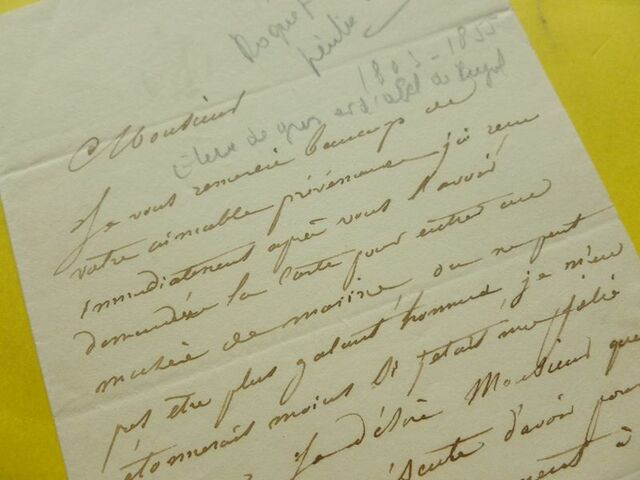 Roquet
peintre
1805 - 1855
Eleve de gros et d'abel de Pujol
Monsieur
Je vous remercie beaucoup de
votre aimable prévenance j'ai reçu
immediatement après vous l'avoir
demandée la carte pour entrer au
musée de marine on ne peut
pas être plus galant homme, je m'en
étonnerais moins Si j'etait
Je désire Monsieur que
d'avoir pour
à